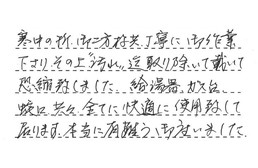 寒中の折、御二方様共丁寧に御作業
下さり、その上“汚れ”迄取り除いて戴いて
恐縮致しました。給湯器、ガス台
蛇口共々全てに快適に使用致して
居ります。本当に有難う御座いました。